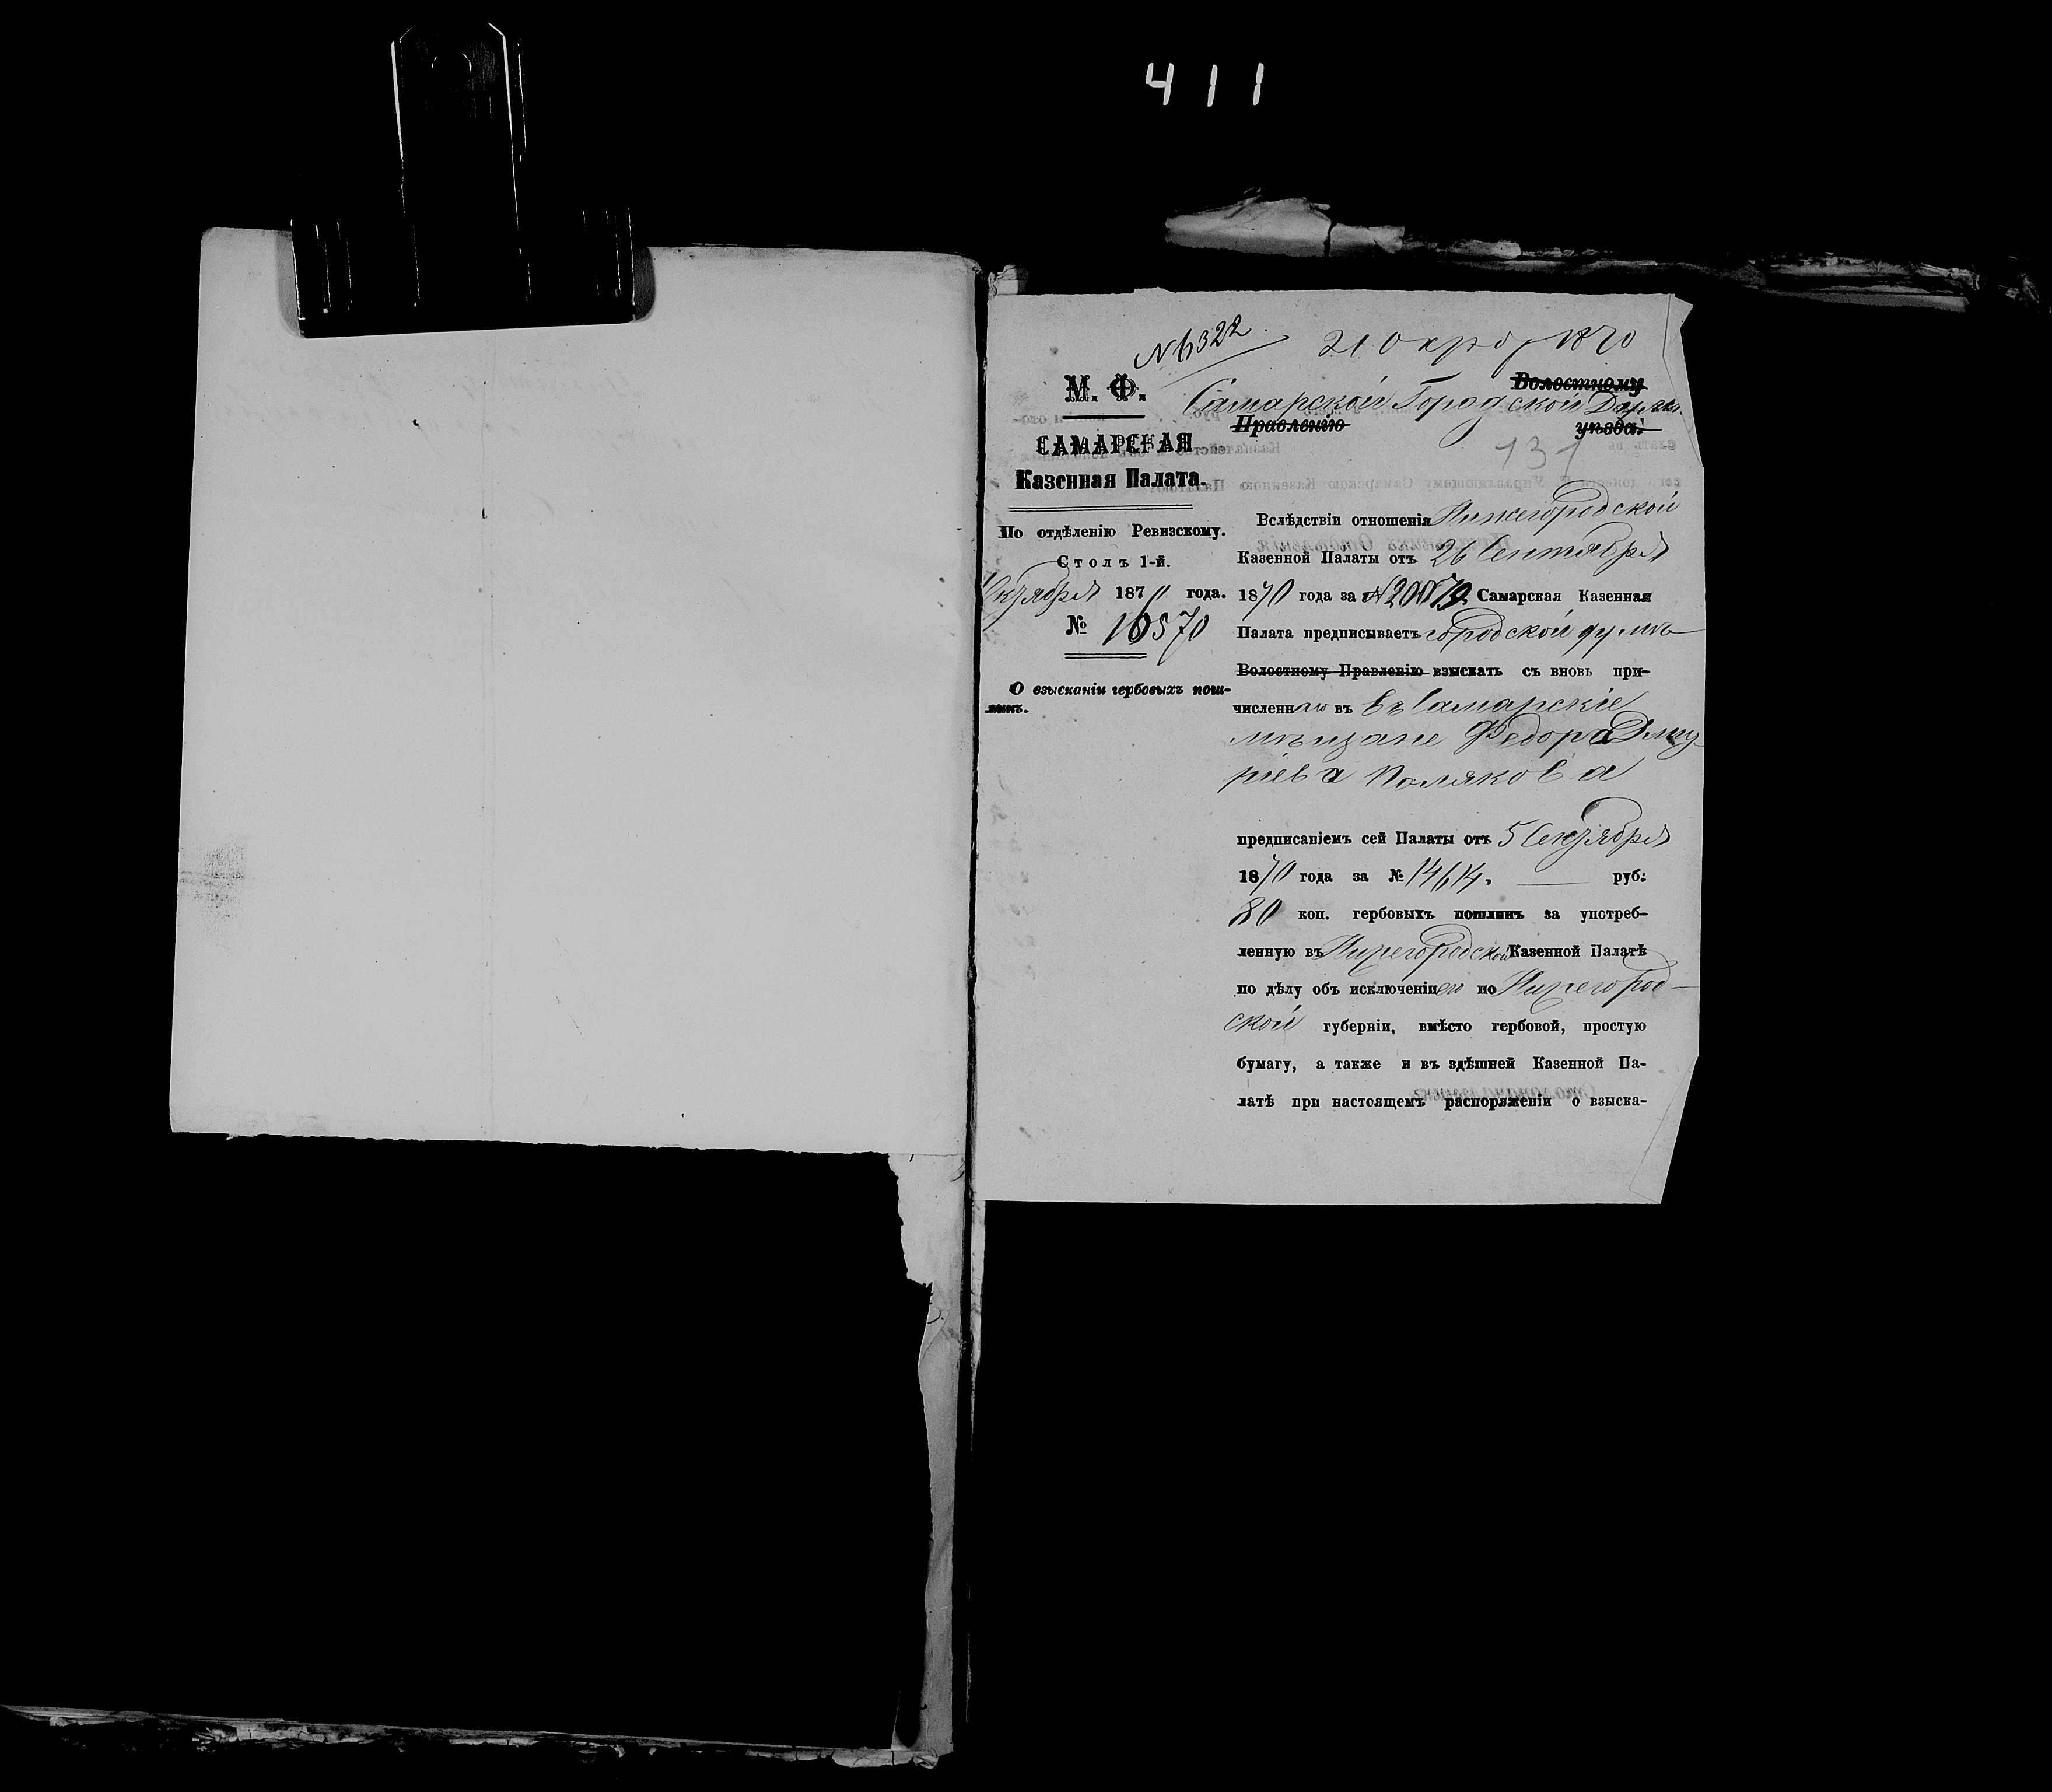 411
N 6322. 21 Октяб 1870
М. Ф.
Волостному
Самарской Городской Думе.
Правленію уѣзда.
131
САМАРСКАЯ
Казенная Палата.
По отдѣленію Ревизскому.
Столъ 1-й.
Октября 1870 года.
№ 16570
О взысканіи гербовыхъ пош-
линъ.
Вслѣдствіи отношенія Нижегородской
Казенной Палаты отъ 26 Сентября
1870 года за № Самарская Казенная
Палата предписываетъ городской думѣ
Волостному Правленію взыскать съ вновь при-
численнаго въ въ Самарскіе
мѣщане Федора Дмит
ріева Полякова
предписаніемъ сей Палаты отъ 5 Сентября
1870 года за № 14614. — руб:
80 коп. гербовыхъ пошлинъ за употреб-
ленную въ Нижегородской Казенной Палатѣ
по дѣлу объ исключеніи его по Нижегород-
ской губерніи, вмѣсто гербовой, простую
бумагу, а также и въ здѣшней Казенной Па-
латѣ при настоящемъ распоряженіи о взыска-